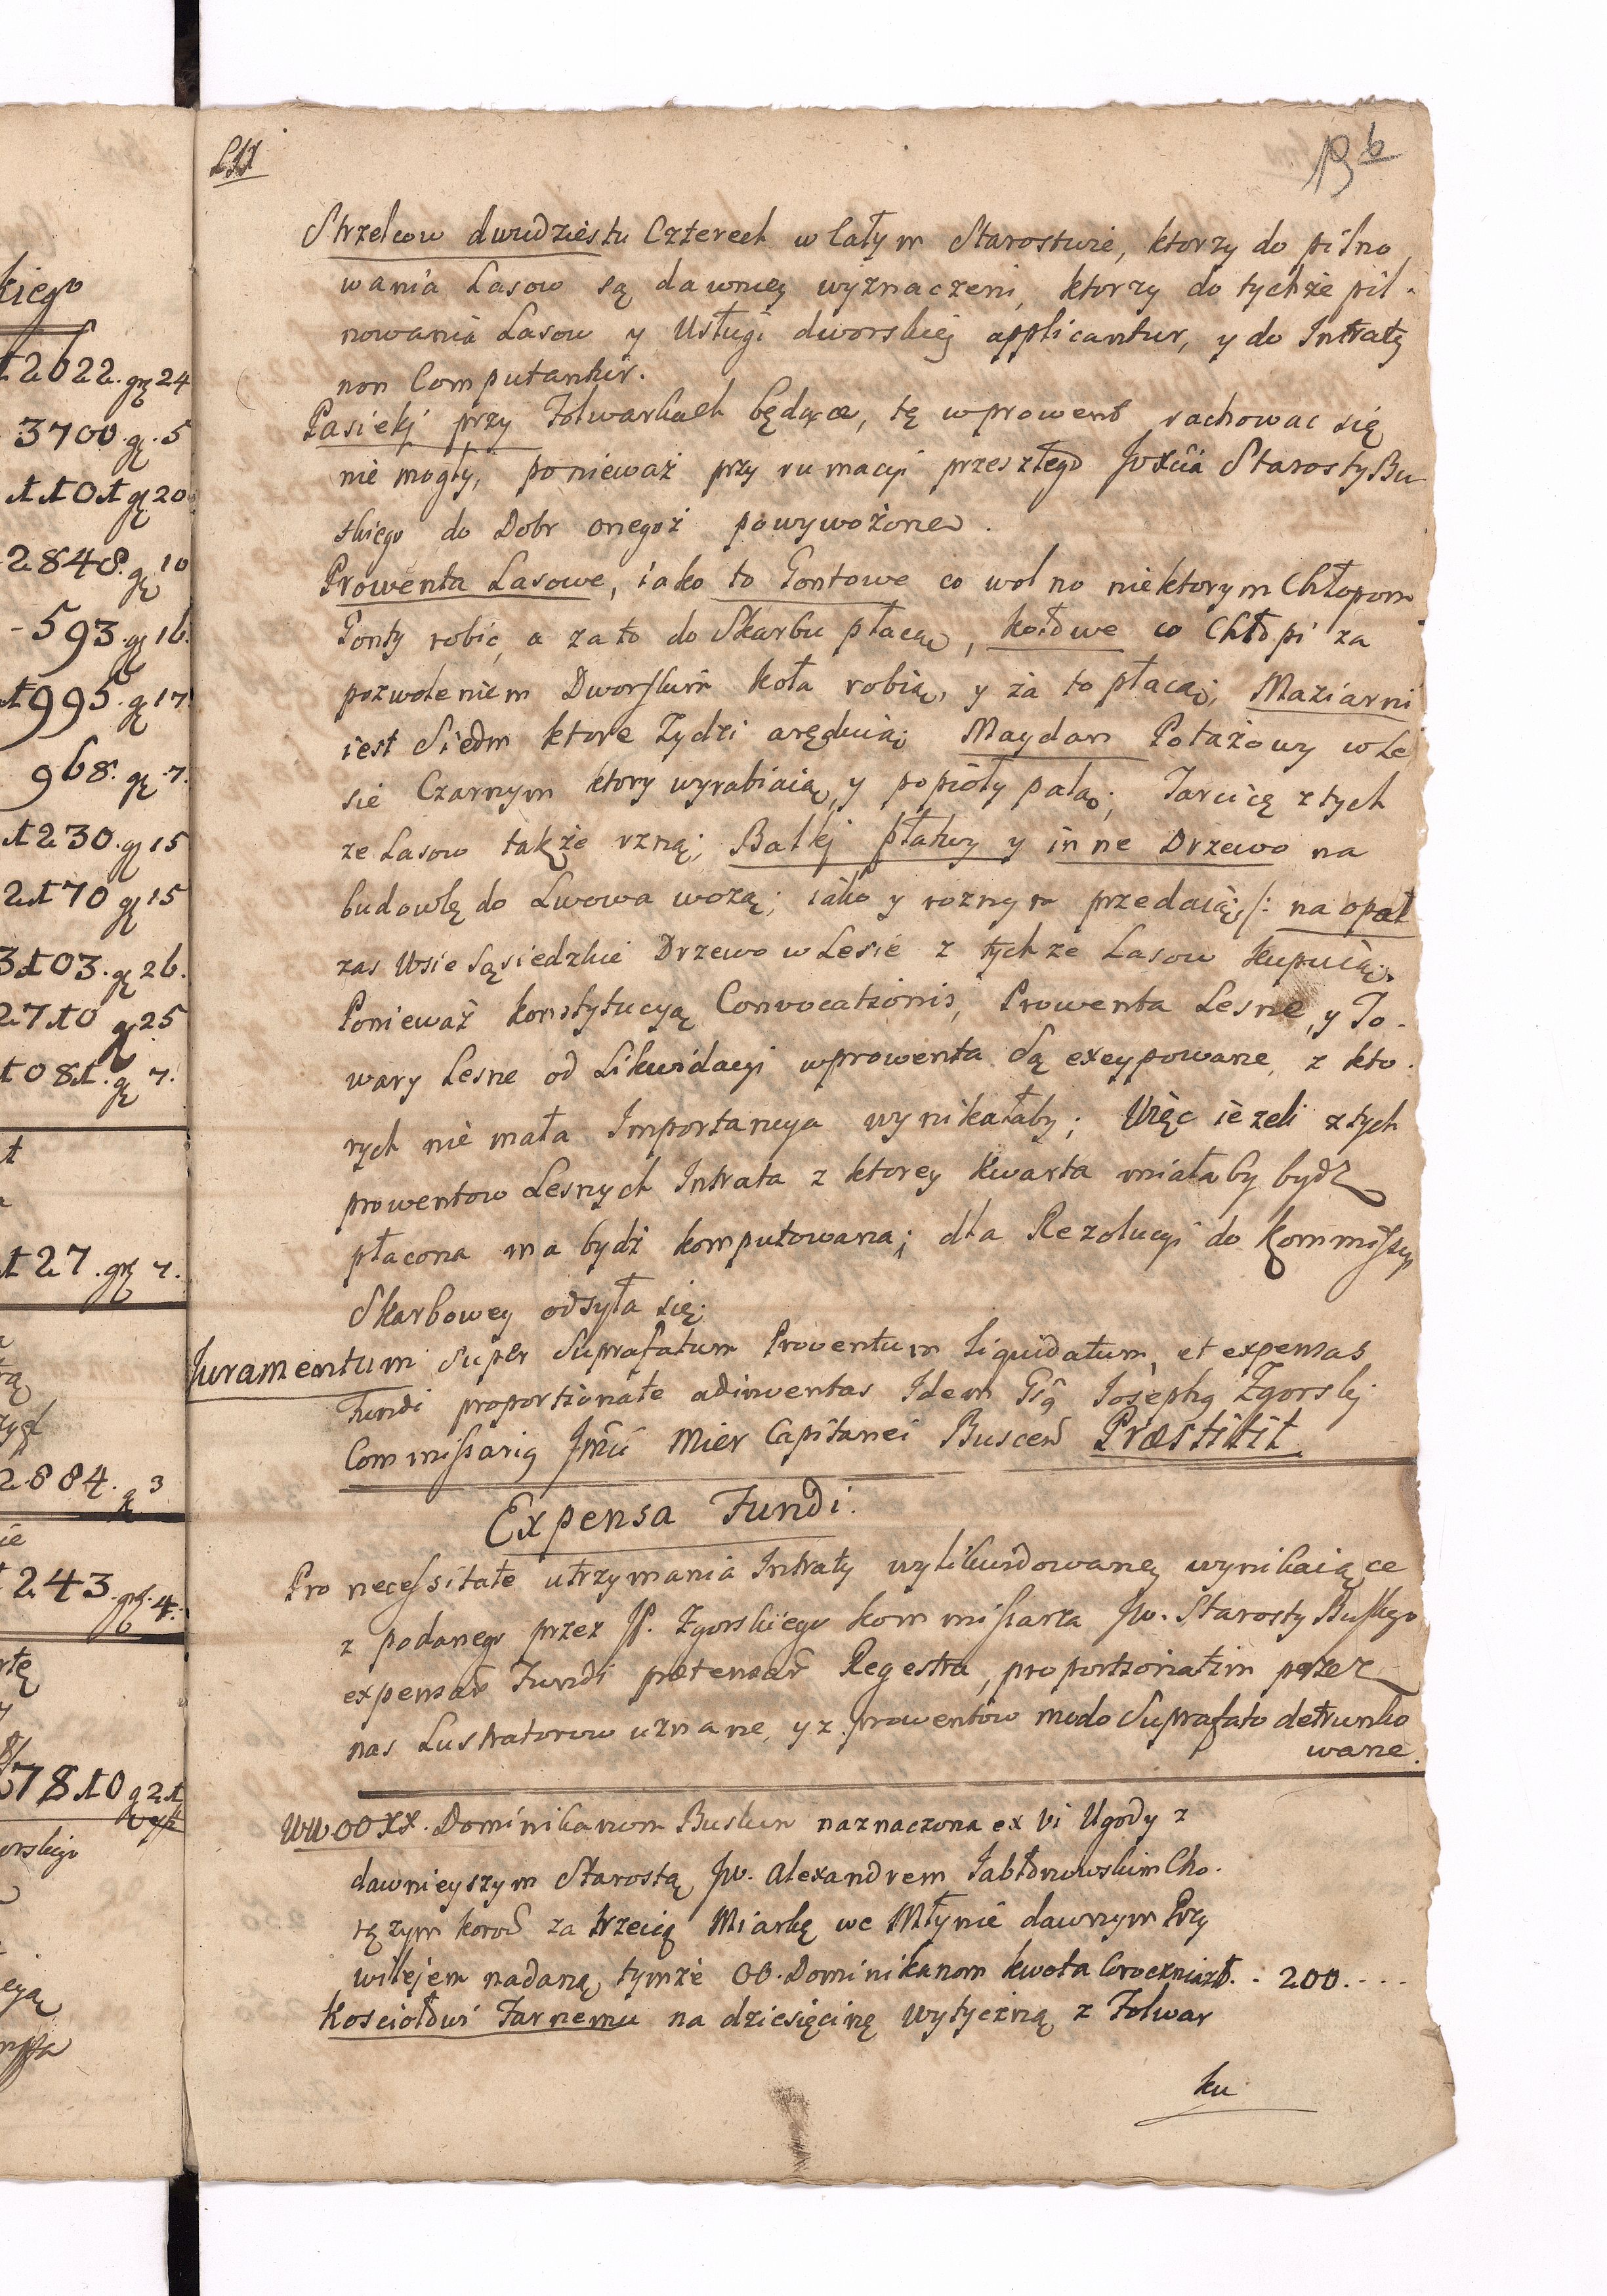 kiego
2622. gr 24
3700. gr. 5
1101 gr 20
2848. gr 10
593. gr 16.
1995. gr 17
968. gr 7.
1230. gr 15
2170 gr 15
3103. gr 26.
2710 gr 25
1081. gr 7.
127. gr 7.
2884. gr 3
1243. gr. 4.
7810 g 21
Strzelcow dwudziestu Czterech w Całym Starostwie, ktorzy do pilno
wania Lasow są dawniey wyznaczeni, ktorzy do tychże pil-
nowania Lasow y Usługi dworskiej applicantur, y do Intraty
non Computantur.
Pasiekj przy Folwarkach będące, tę w prowent rachowac się
nie mogły, ponieważ przy rumacyi przeszłego JWXcia Starosty Bu
skiego do Dobr onegoż powywożone.
Prowenta Lasowe, iako to Gontowe co wolno niektorym Chłopom
Gonty robić, a za to do Skarbu płacą, kołowe co Chłopi za
pozwoleniem Dworskim koła robią, y za to płacą; Maziarni
iest Siedm ktore Zydzi arędują; Maydan Potażowy w Le
sie Czarnym ktory wyrabiaią, y popioły palą; Tarcicę z tych
ze Lasow także rzną; Balkj płatwy y inne Drzewo na
budowlę do Lwowa wożą; iako y roznym przedaią /: na opał
zas Wsie Sąsiedzkie Drzewo w Lesie z tychze Lasow kupuią;
Ponieważ Konstytucyą Convocationis, Prowenta Lesne, y To-
wary Lesne od Likwidacyi w prowenta są excypowane, z kto-
rych nie mała Importancya wynikałaby; Więc ieżeli z tych
prowentow Lesnych Intrata z ktorey Kwarta miałaby bydz
płacona ma bydź komputowana; dla Rezolucyi do Kommissyi
Skarbowey odsyła się;
Juramentum super suprafatum Proventum liquidatum, et expensas
Fundi proportionate adinventas Idem Josephg Zgorskj
Commissarig Mier Capitanei Buscen Præstitit.
Expensa Fundi.
Pro necessitate utrzymania Intraty wylikwidowaney wynikaiące
z podanego przez JP. Zgorskiego kommissarza Jw. Starosty Buskiego
expensar Fundi prætensar Regestra, proportionatim przez
nas Lustratorow uznane, y z prowentow modo suprafato detrunko
wane.
WWOOXX. Dominikanom Buskim naznaczona ex vi Ugody z
dawnieyszym Starostą Jw. Alexandrem Jabłonowskim Cho-
rążym Koron za trzecią Miarkę we Młynie dawnym Przy
wilejem nadaną tymże OO. Dominikanom kwota Corocznia zł. - 200. - - -
Kosciołowi Farnemu na dziesięcinę wytyczną z Folwar
ku